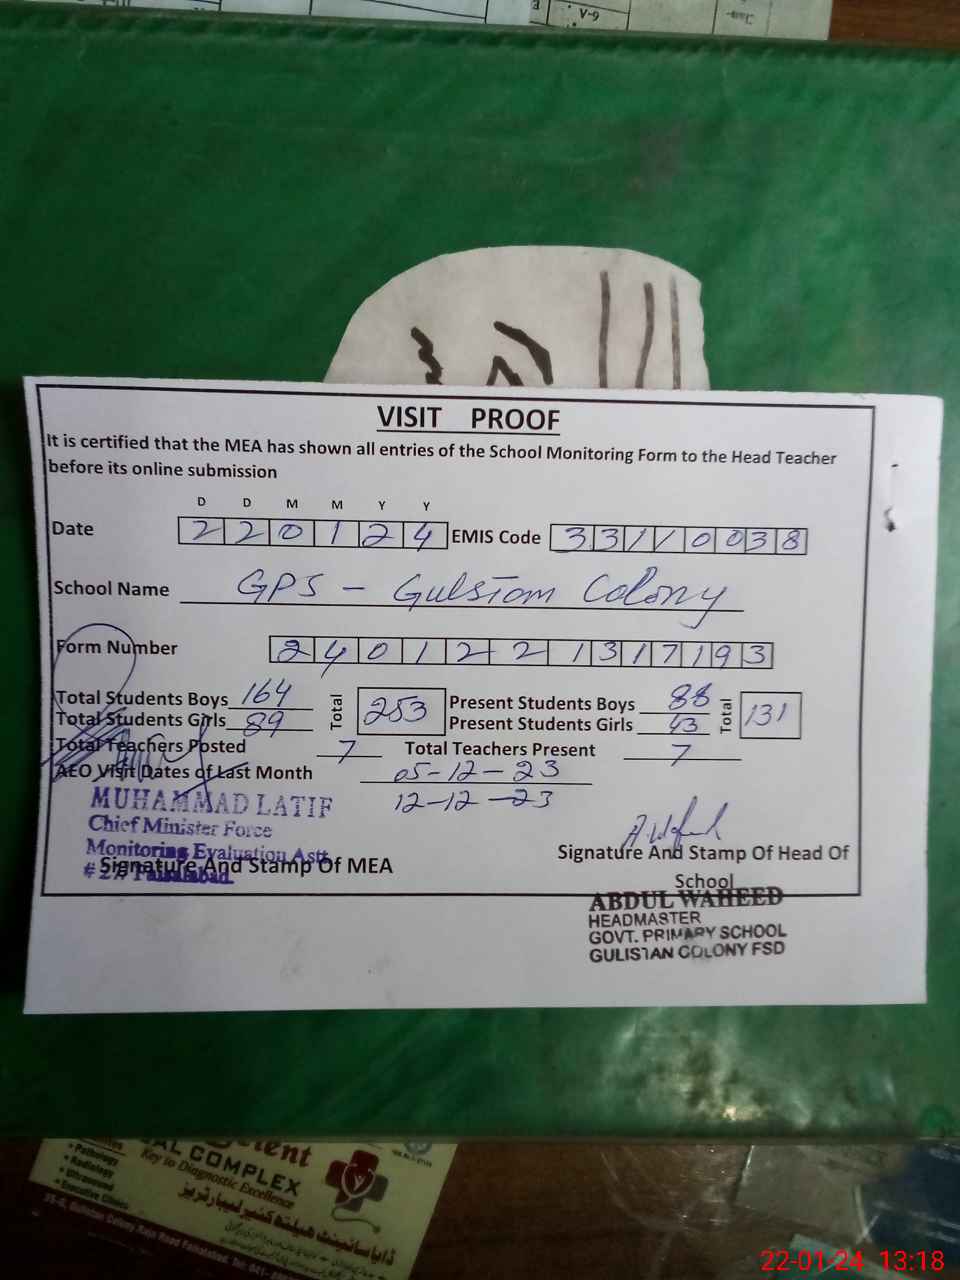 G-A
VISIT PROOF
It is certified that the MEA has shown all entries of the School Monitoring Form to the Head Teacher
before its online submission
D D M M Y Y
Date 2 2 0 1 2 4 EMIS Code 3 3 1 1 0 0 3 8
School Name GPS - Gulstan Colony
Form Number 2 4 0 1 2 2 1 3 1 7 1 9 3
Total Students Boys 164 Total 253 Present Students Boys 88 Total 131
Total Students Girls 89 Present Students Girls 43
Total Teachers Posted 7 Total Teachers Present 7
AEO Visit Dates of Last Month 05-12-23
12-12-23
MUHAMMAD LATIF
Chief Minister Force
Monitoring Evaluation Astt
Signature And Stamp Of MEA
# 27 Faisalabad
A.Waheed
Signature And Stamp Of Head Of
School
ABDUL WAHEED
HEADMASTER
GOVT. PRIMARY SCHOOL
GULISTAN COLONY FSD
COMPLEX
Key to Diagnostic Excellence
• Pathology
• Radiology
• Ultrasound
• Executive Clinic
Gulistan Colony, Road Faisalabad. Tel: 041-
22-01-24 13:18